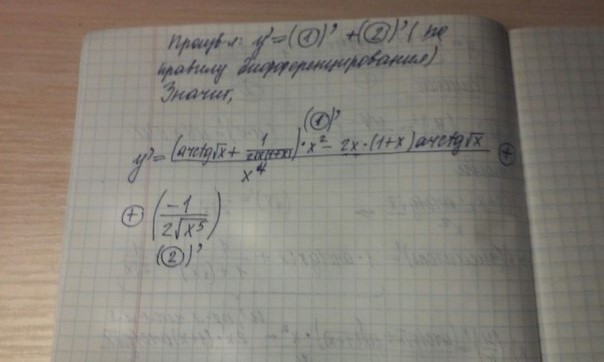 Произв-я: y' = (①)' + (②)' (по
правилу дифференцирования)
Значит,
(①)'
y' = ((arctg√x + 1/(2√x(1+x))) · x² − 2x · (1+x) arctg√x) / x⁴ ⊕
⊕ (−1/(2√x⁵))
(②)'